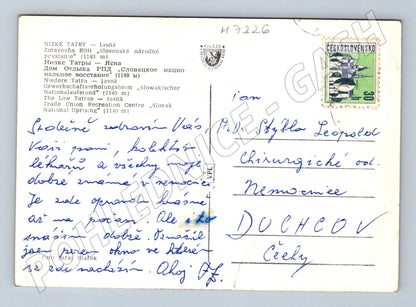 H7226
NÍZKE TATRY – Jasná
Zotavovňa ROH „Slovenské národné
povstanie" (1140 m)
Низке Татры – Ясна
Дом Отдыха РПД „Словацкое нацио-
нальное восстание" (1140 м)
Niedere Tatra – Jasná
Gewerkschaftserholungsheim „Slowakischer
Nationalaufstand" (1140 m)
The Low Tatras – Jasná
Trade Union Recreation Centre „Slovak
National Uprising" (1140 m)
ČESKOSLOVENSKO
30 h
Srdečně zdravím Vás,
Vaši paní, kolektiv
lékařů a všechny moje
dobré známé v nemocnici.
Je zde opravdu krásně
až na počasí. Ale i to
snáším dobře. Označil
jsem pero okno ve kterém
se zde nacházím. Ahoj
pan
M.Dr. Leopold
Chirurgické od.
Nemocnice
DUCHCOV
Čechy
POHLEDNICE - GASH